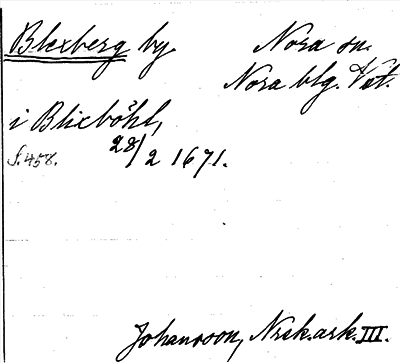 Blexberg by. Nora sn.
Nora blg. Vst.
i Blixböhl,
f. 458. 28/2 1671.
Johansson, Nrsk. ark. III.